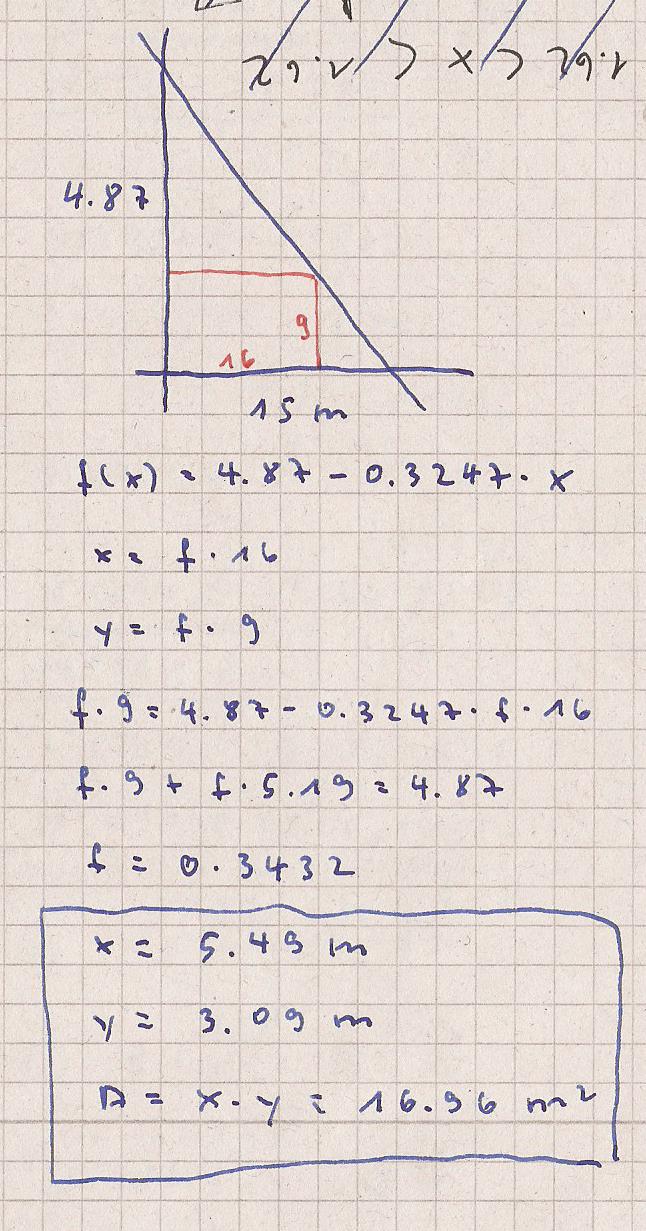 4.87
9
16
15 m
f(x) = 4.87 - 0.3247 · x
x = f · 16
y = f · 9
f · 9 = 4.87 - 0.3247 · f · 16
f · 9 + f · 5.19 = 4.87
f = 0.3432
x = 5.49 m
y = 3.09 m
A = x · y = 16.96 m²